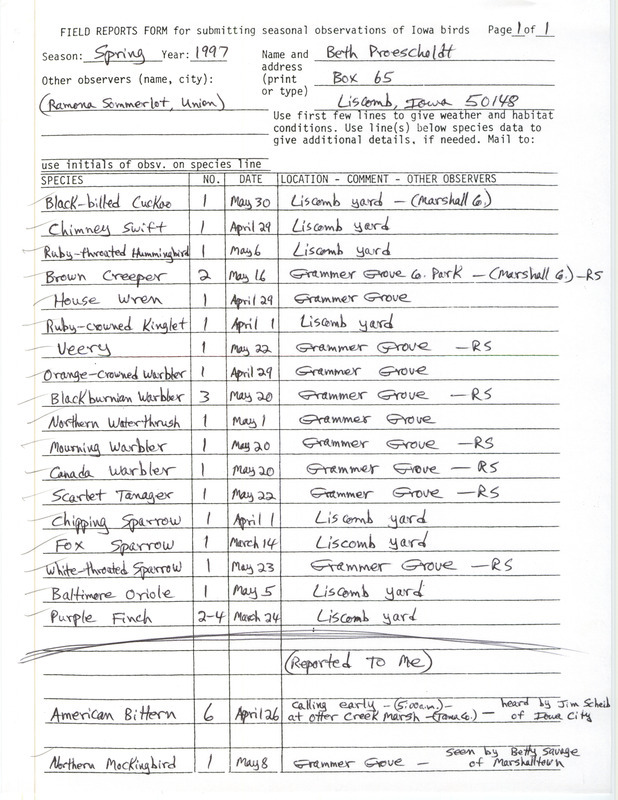 FIELD REPORTS FORM for submitting seasonal observations of Iowa birds Page 1 of 1
Season: Spring Year: 1997 Name and address (print or type) Beth Proescholdt
Box 65
Liscomb, Iowa 50148
Other observers (name, city):
(Ramona Sommerlot, Union)
Use first few lines to give weather and habitat
conditions. Use line(s) below species data to
give additional details, if needed. Mail to:
use initials of obsv. on species line
SPECIES NO. DATE LOCATION - COMMENT - OTHER OBSERVERS
Black-billed Cuckoo 1 May 30 Liscomb yard - (Marshall Co.)
Chimney Swift 1 April 29 Liscomb yard
Ruby-throated Hummingbird 1 May 6 Liscomb yard
Brown Creeper 2 May 16 Grammer Grove Co. Park - (Marshall Co.) - RS
House Wren 1 April 29 Grammer Grove
Ruby-crowned Kinglet 1 April 1 Liscomb yard
Veery 1 May 22 Grammer Grove - RS
Orange-crowned Warbler 1 April 29 Grammer Grove
Blackburnian Warbler 3 May 20 Grammer Grove - RS
Northern Waterthrush 1 May 1 Grammer Grove
Mourning Warbler 1 May 20 Grammer Grove - RS
Canada Warbler 1 May 20 Grammer Grove - RS
Scarlet Tanager 1 May 22 Grammer Grove - RS
Chipping Sparrow 1 April 1 Liscomb yard
Fox Sparrow 1 March 14 Liscomb yard
White-throated Sparrow 1 May 23 Grammer Grove - RS
Baltimore Oriole 1 May 5 Liscomb yard
Purple Finch 2-4 March 24 Liscomb yard
(Reported To Me)
American Bittern 6 April 26 calling early - (5:00a.m.) - at Otter Creek Marsh - (Tama Co.) - heard by Jim Scheib of Iowa City
Northern Mockingbird 1 May 8 Grammer Grove - seen by Betty Savage of Marshalltown